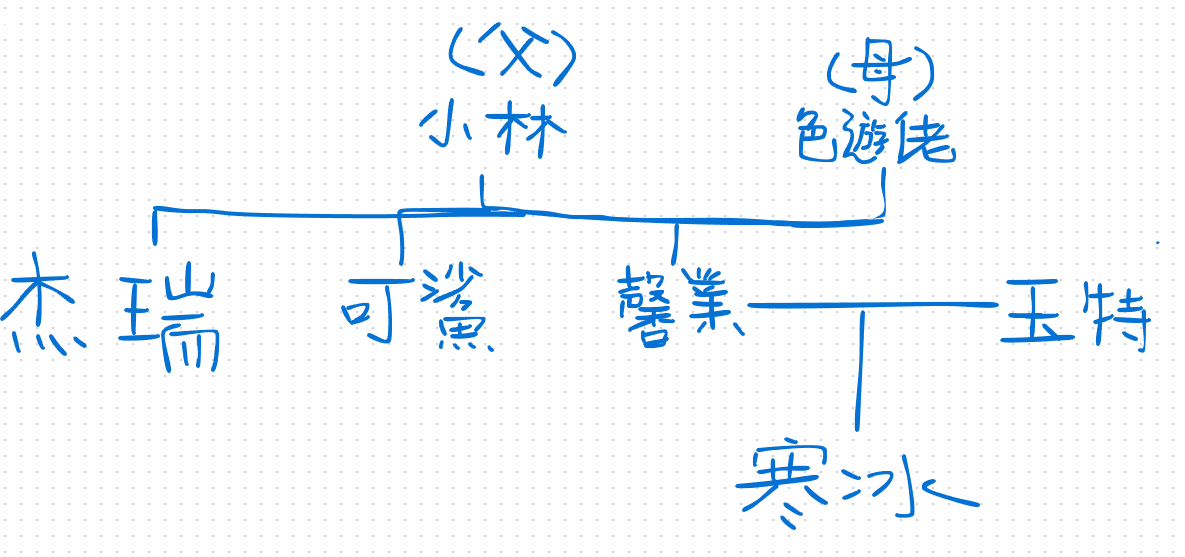 (父) (母)
小林 色遊佬
杰瑞 可鯊 馨業 玉特
寒冰